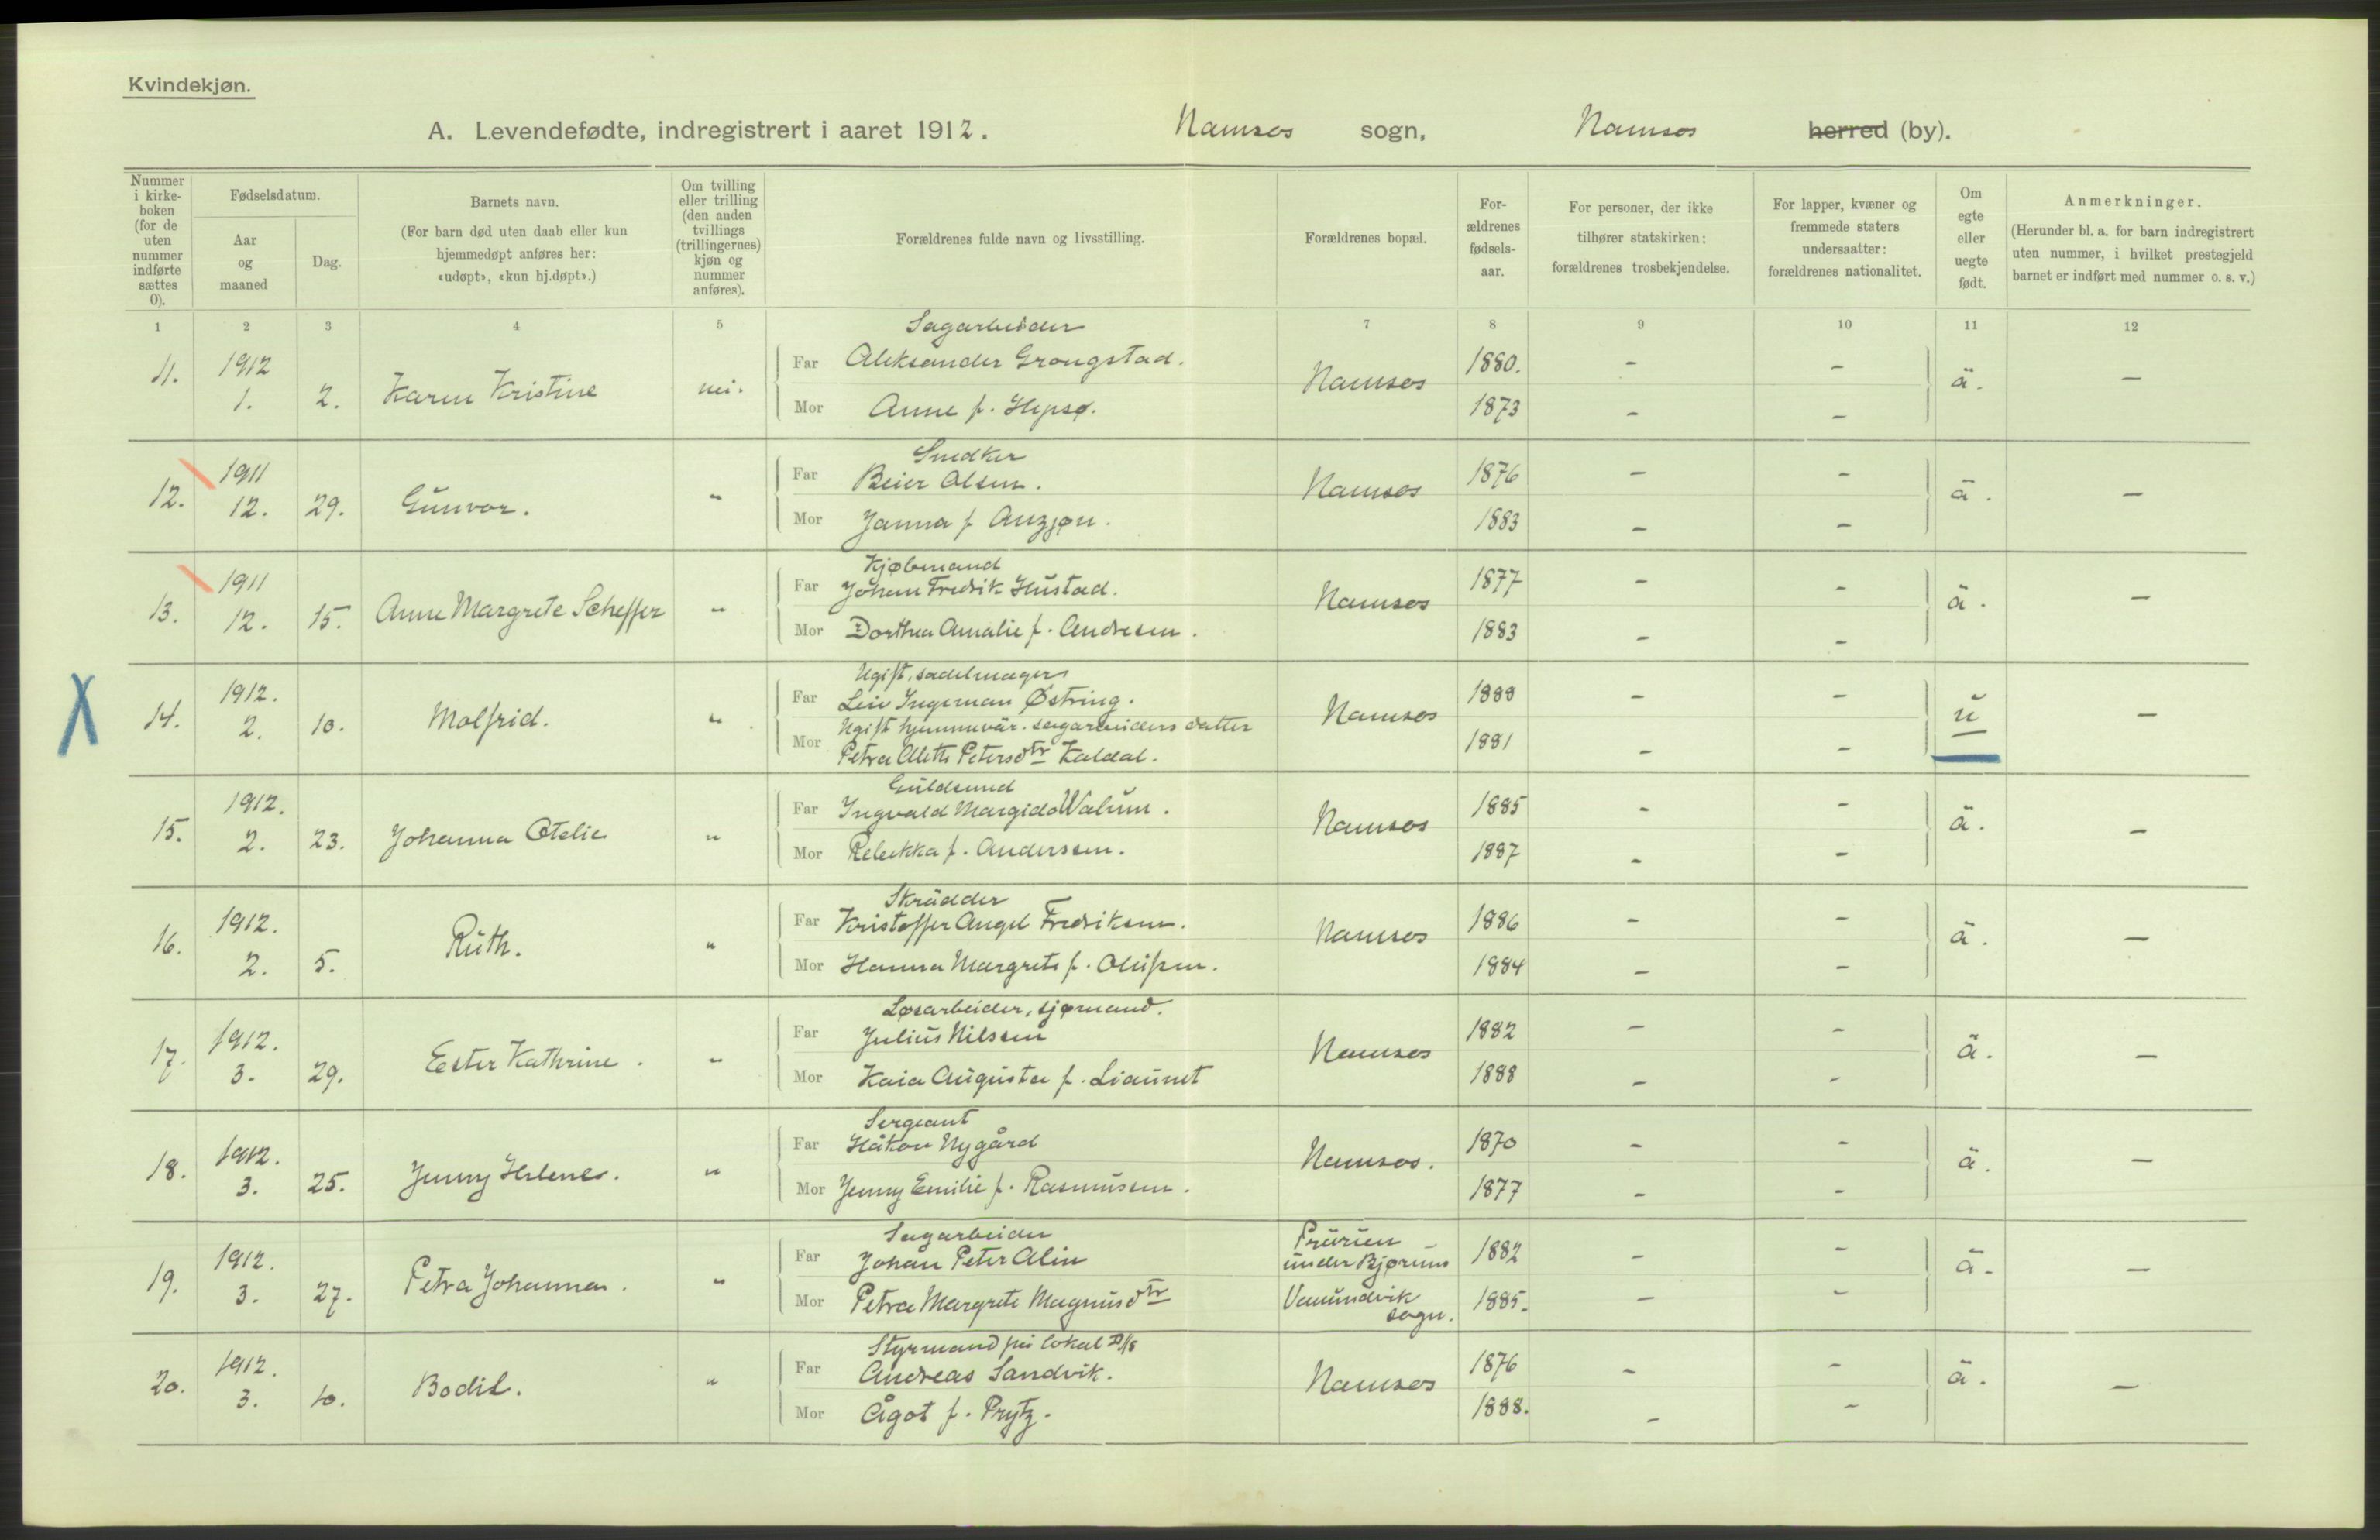 Kvindekjøn.
A. Levendefødte, indregistrert i aaret 1912. Namsos sogn, Namsos herred (by).
Nummer i kirke-boken (for de uten nummer indførte sættes 0).
Fødselsdatum.
Aar og maaned
Dag.
Barnets navn.
(For barn død uten daab eller kun hjemmedøpt anføres her: «udøpt», «kun hj.døpt».)
Om tvilling eller trilling (den anden tvillings (trillingernes) kjøn og nummer anføres).
Forældrenes fulde navn og livsstilling.
Forældrenes bopæl.
For-ældrenes fødsels-aar.
For personer, der ikke tilhører statskirken: forældrenes trosbekjendelse.
For lapper, kvæner og fremmede staters undersaatter: forældrenes nationalitet.
Om egte eller uegte født.
Anmerkninger.
(Herunder bl. a. for barn indregistrert uten nummer, i hvilket prestegjeld barnet er indført med nummer o. s. v.)
1 2 3 4 5 7 8 9 10 11 12
Sagarbeider
11. 1912 1. 2. Karen Kristine nei. Far Aleksander Grongstad. Namsos 1880. - - ä. -
Mor Anne f. Hepsø. 1873 - -
Snedker
12. 1911 12. 29. Gunvor. " Far Beier Olsen. Namsos 1876 - - ä. -
Mor Janna f. 1883 - -
Kjøbmand
13. 1911 12. 15. Anne Margrete Scheffer " Far Johan Fredrik Hustad. Namsos 1877 - - ä. -
Mor Dorthea Amalie f. Andresen. 1883 - -
Ugift, sadelmager
X 14. 1912. 2. 10. Molfrid. " Far Leiv Ingeman Østring. Namsos 1888 - - u -
Ugift hjemmevær. sagarbeiders datter
Mor Petra Aleth Petersdtr Kaldal. 1881 - -
Guldsmed
15. 1912. 2. 23. Johanna Otelie " Far Ingvald Margido Walum. Namsos 1885 - - ä. -
Mor Rebekka f. Anderssen. 1887 - -
Skrædder
16. 1912. 2. 5. Ruth. " Far Kristoffer Angel Fredriksen. Namsos 1886 - - ä. -
Mor Hanna Margrete f. Olufsen. 1884 - -
Løsarbeider, sjømand.
17. 1912. 3. 29. Ester Kathrine. " Far Julius Nilssen Namsos 1882 - - ä. -
Mor Kaia Augusta f. Liaunet 1888 - -
Sergeant
18. 1912. 3. 25. Jenny Helene. " Far Håkon Nygård Namsos. 1870 - - ä. -
Mor Jenny Emilie f. Rasmussen. 1877 - -
Sagarbeider
19. 1912. 3. 27. Petra Johanna. " Far Johan Peter Alin Prærien under Bjørum 1882 - - ä. -
Mor Petra Margrete Magnusdtr Vemundvik sogn. 1885. - -
Styrmand på lokal D/S
20. 1912. 3. 10. Bodil. " Far Andreas Sandvik. Namsos 1876 - - ä. -
Mor Ågot f. Prytz. 1888. - -